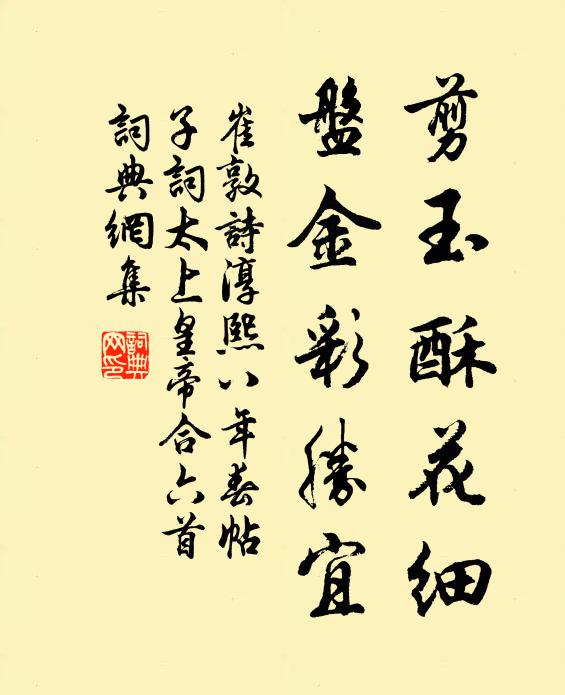 剪玉酥花細
盤金彩勝宜
崔敦詩淳熙八年春帖
子詞太上皇帝合六首
詞典網集
詞典網印